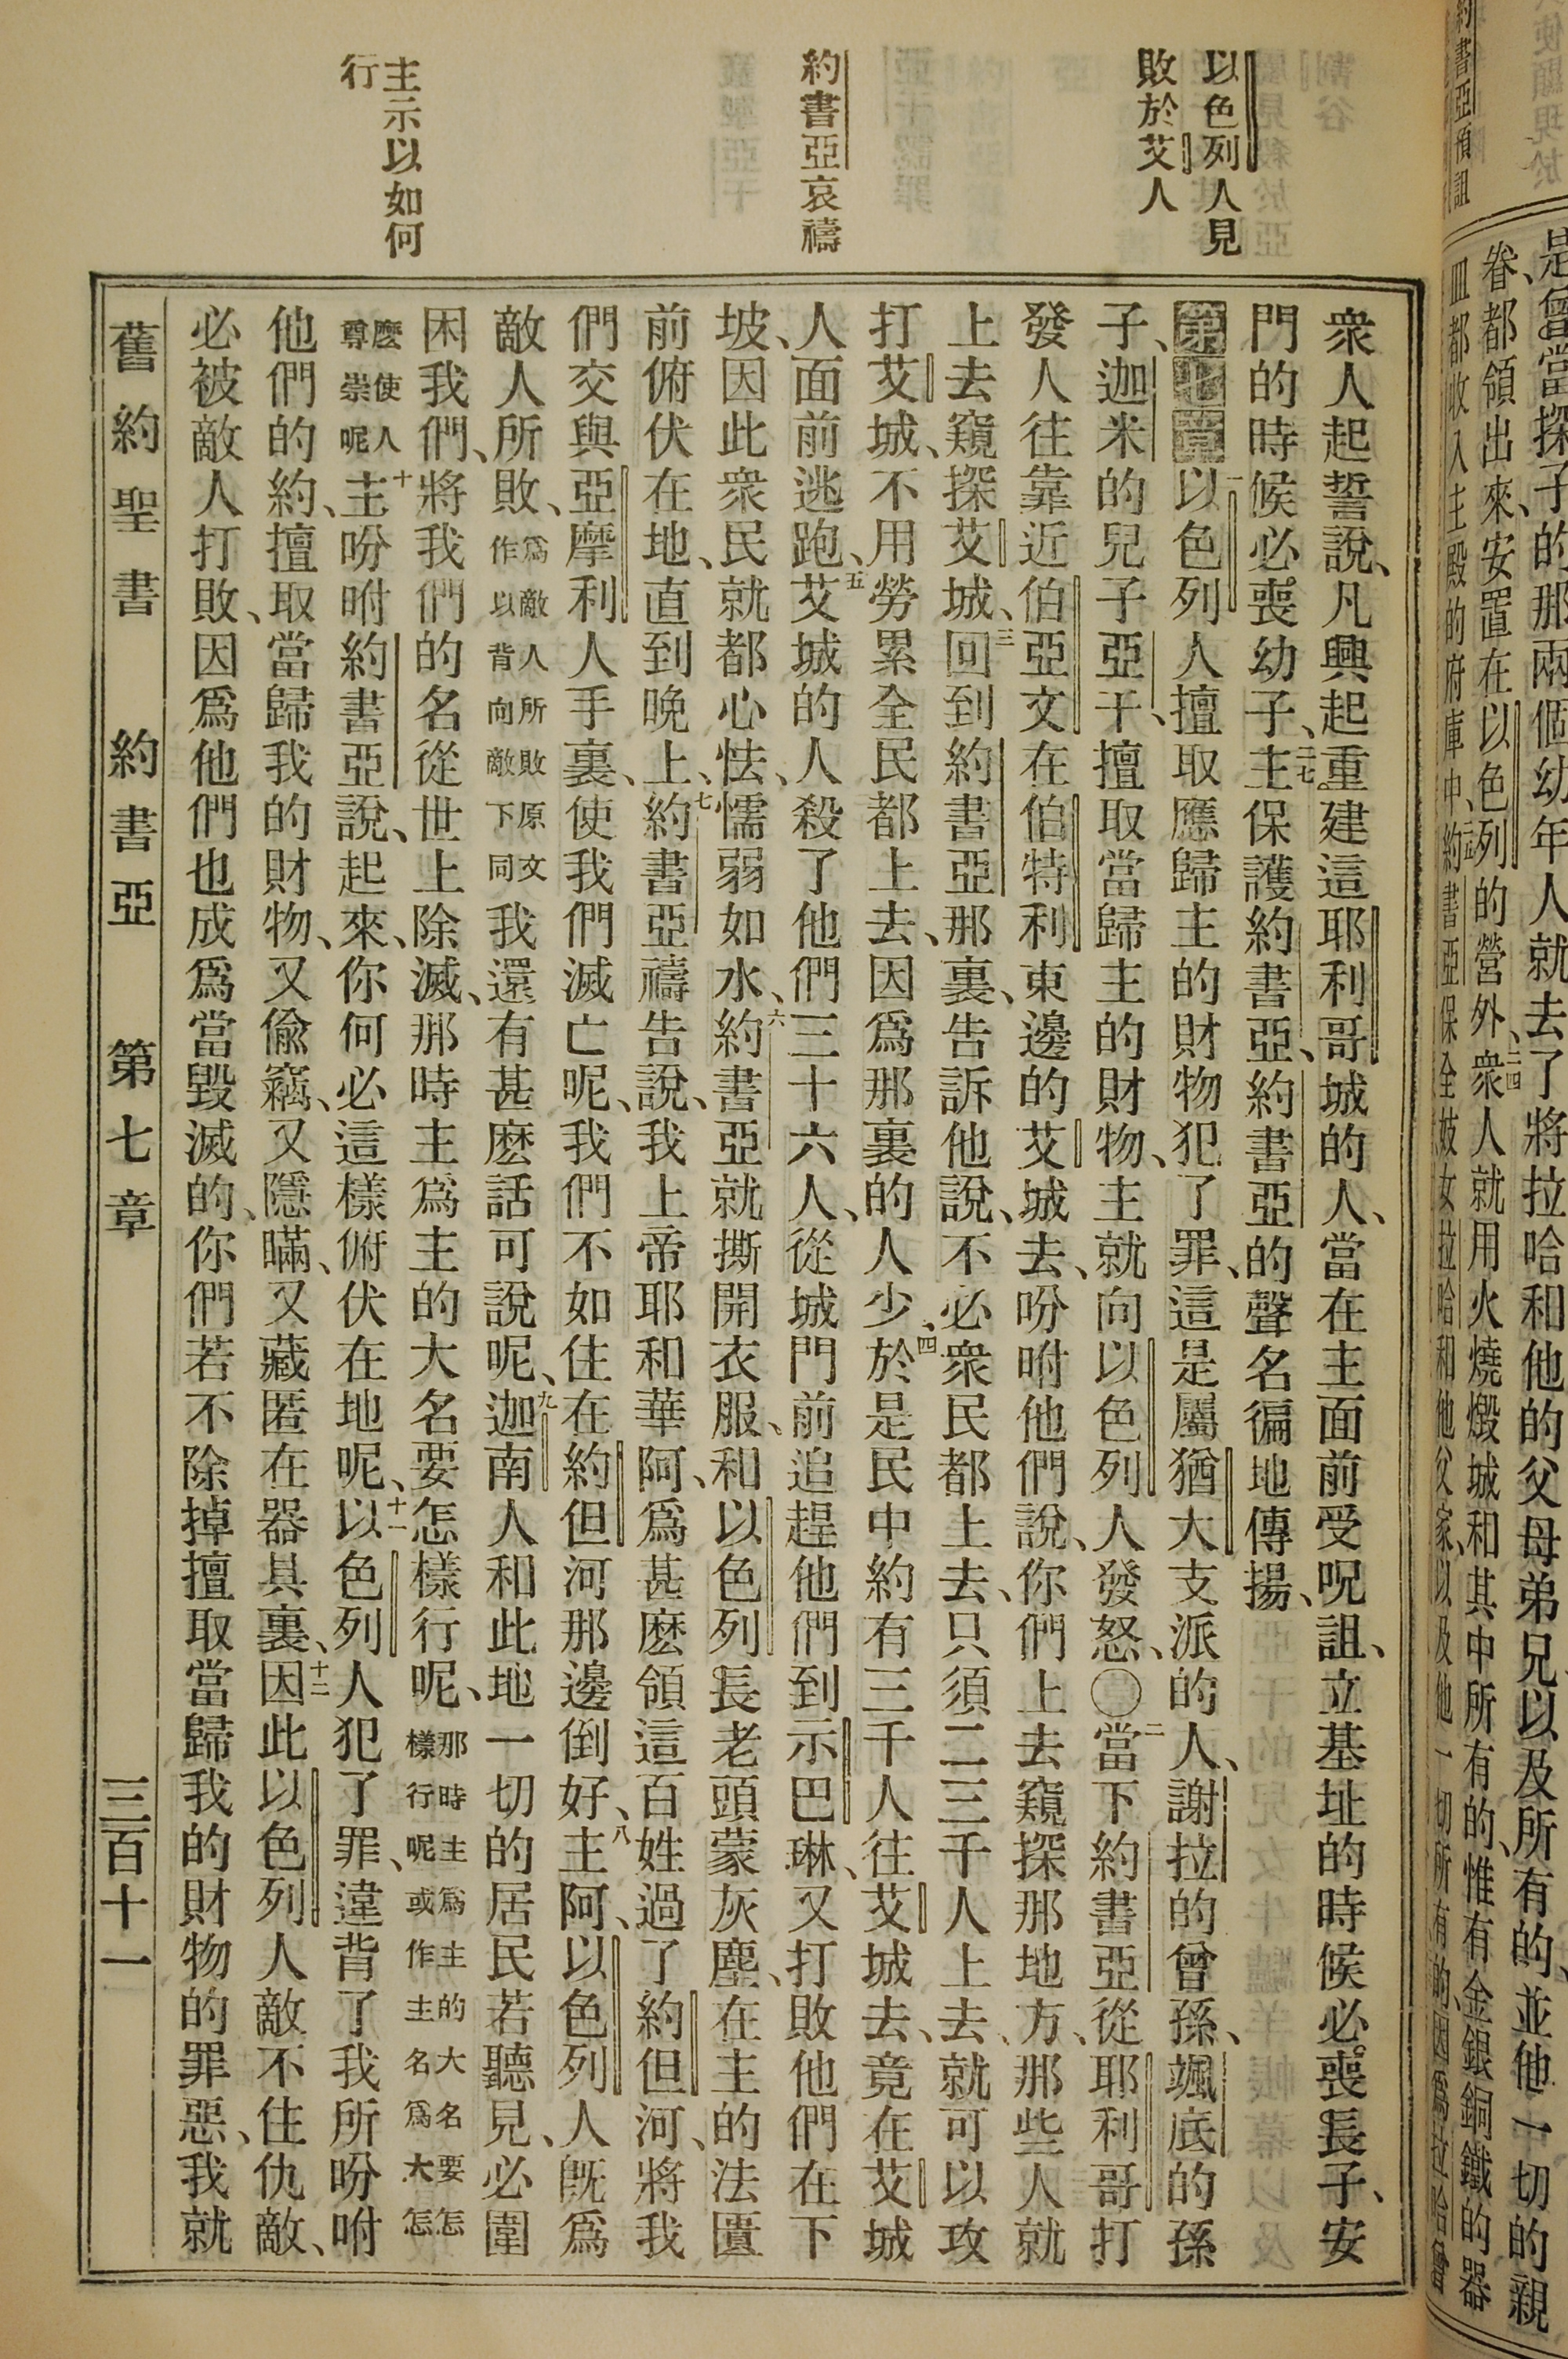 是曾當探子的那兩個幼年人就去了將拉哈和他的父母弟兄以及所有的、並他一切的親
眷、都領出來、安置在以色列的營外、二四衆人就用火燒燬城和其中所有的、惟有金銀銅鐵的器
皿都收入主殿的府庫中、約書亞保全妓女拉哈和他父家、以及他一切所有的、因爲拉哈曾
約書亞預詛
以色列人見
敗於艾人
約書亞哀禱
主示以如何
行
衆人起誓說、凡興起重建這耶利哥城的人、當在主面前受呪詛、立基址的時候必喪長子、安
門的時候必喪幼子、二七主保護約書亞、約書亞的聲名徧地傳揚、
第七章一以色列人擅取應歸主的財物犯了罪、這是屬猶大支派的人、謝拉的曾孫、颯底的孫
子、迦米的兒子亞干、擅取當歸主的財物、主就向以色列人發怒、〇二當下約書亞從耶利哥打
發人往靠近伯亞文在伯特利東邊的艾城去、吩咐他們說、你們上去窺探那地方、那些人就
上去窺探艾城、三回到約書亞那裏、告訴他說、不必衆民都上去、只須二三千人上去、就可以攻
打艾城、不用勞累全民都上去、因爲那裏的人少、四於是民中約有三千人往艾城去、竟在艾城
人面前逃跑、五艾城的人殺了他們三十六人、從城門前追趕他們到示巴琳、又打敗他們在下
坡、因此衆民就都心怯、懦弱如水、六約書亞就撕開衣服、和以色列長老頭蒙灰塵、在主的法匱
前俯伏在地、直到晚上、七約書亞禱告說、我上帝耶和華阿、爲甚麽領這百姓過了約但河、將我
們交與亞摩利人手裏、使我們滅亡呢、我們不如住在約但河那邊倒好、八主阿、以色列人旣爲
敵人所敗、爲敵人所敗原文作以背向敵下同我還有甚麽話可說呢、九迦南人和此地一切的居民若聽見、必圍
困我們、將我們的名從世上除滅、那時主爲主的大名要怎樣行呢、那時主爲主的大名要怎樣行呢或作主名爲大怎
麽使人尊崇呢十主吩咐約書亞說、起來、你何必這樣俯伏在地呢、十一以色列人犯了罪、違背了我所吩咐
他們的約、擅取當歸我的財物、又偷竊、又隱瞞、又藏匿在器具裏、十二因此以色列人敵不住仇敵、
必被敵人打敗、因爲他們也成爲當毀滅的、你們若不除掉擅取當歸我的財物的罪惡、我就
舊約聖書 約書亞 第七章 三百十一